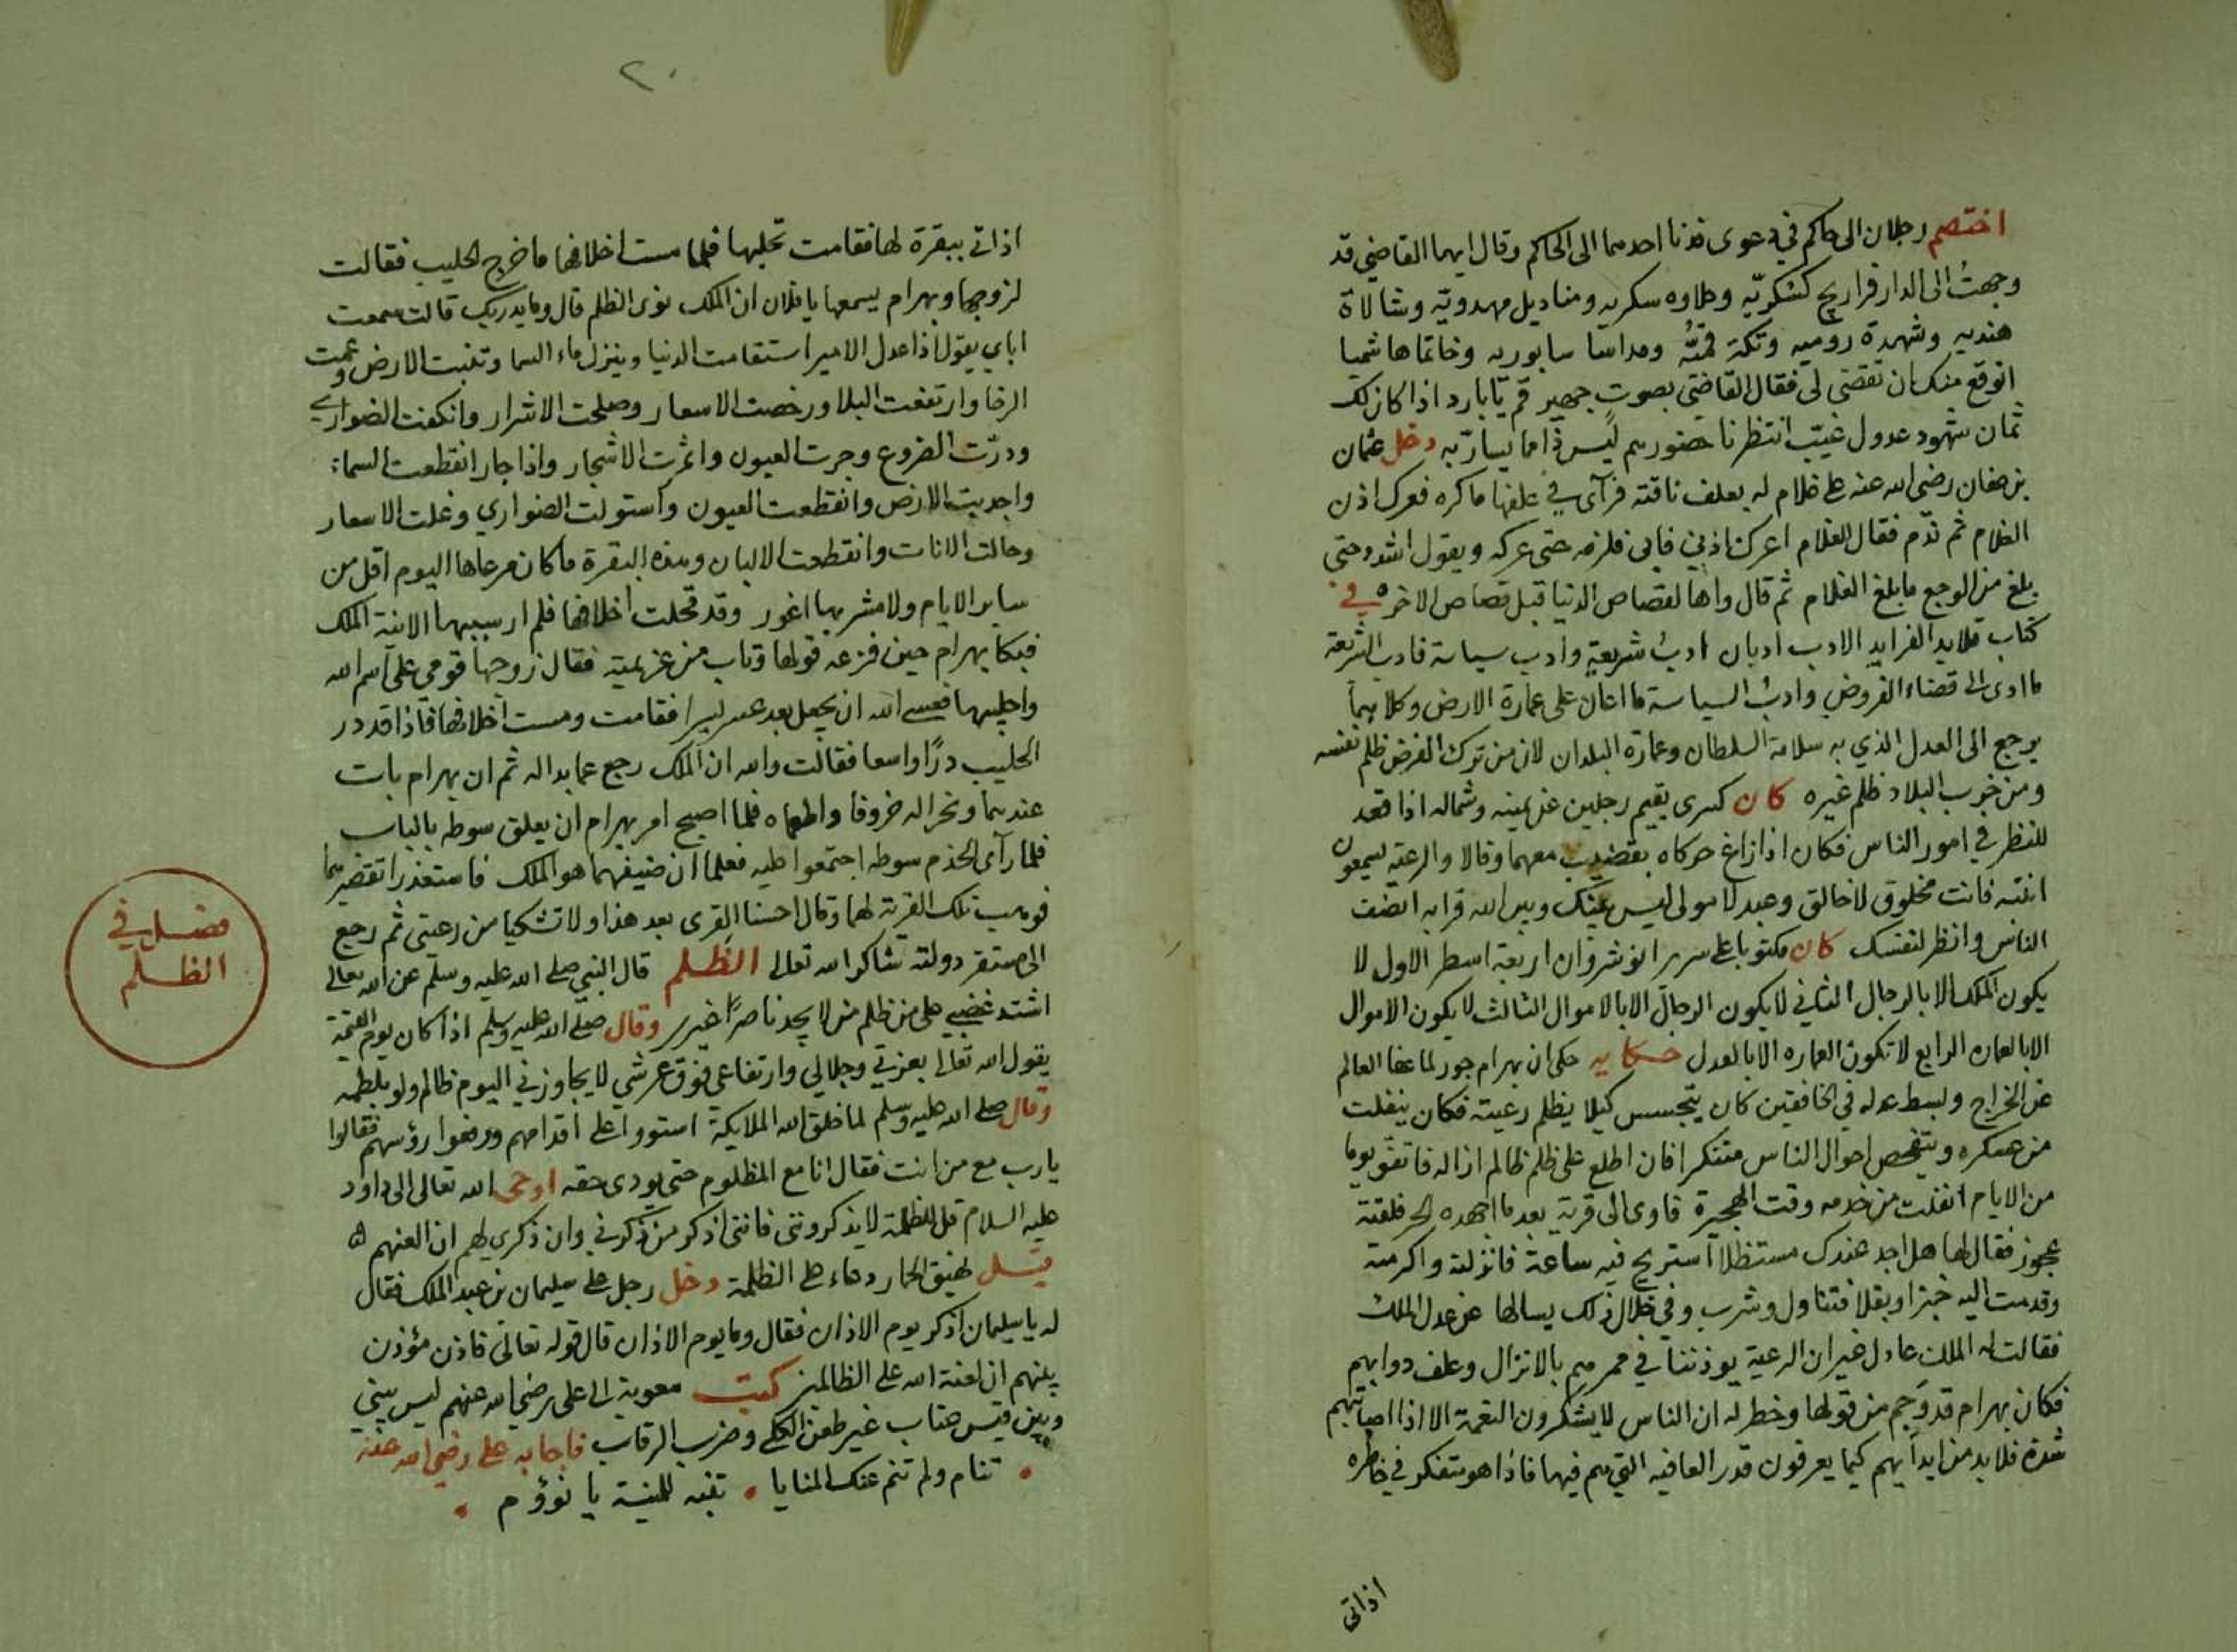 اختصم رجلان الى حاكم في دعوى فدنا احدهما الى الحاكم وقال ايها القاضي قد
وجهتُ الى الدار فراريج كسكريّه وحلاوه سكريه ومناديل مهدويّة وشالاة
هنديه وشهدة روميه وتكة قميّه ومداسا سابوريه وخاتما هاشميا
اتوقع منك ان تقضى لى فقال القاضى بصوتٍ جهيرٍ قم يا بارد اذا كان لك
ثمان شهود عدول غيّب انتظرنا حضورهم ليس ذا مما يسارّ به دخل عثمان
بن عفان رضى الله عنه على غلام له يعلف ناقته فرآى في علفها ما كره فعرك اذن
الغلام ثم ندم فقال الغلام اعرك اذني فابى فلزمه حتى عركه ويقول اشدد حتى
بلغ من الوجع ما بلغ الغلام ثم قال واها لقصاص الدنيا قبل قصاص الاخره في
كتاب قلايد الفرايد الادب ادبان ادبُ شريعةٍ وادب سياسة فادب الشريعة
ما ادى الى قضاء الفروض وادبُ السياسة ما اعان على عمارة الارض وكلاهما
يرجع الى العدل الذي به سلامة السلطان وعمارة البلدان لان من ترك الفرض ظلم نفسه
ومن خرب البلاد ظلم غيره كان كسرى يقيم رجلين عن يمينه وشماله اذا قعد
للنظر في امور الناس فكان اذا زاغ حركاه بقضيب معهما وقالا والرعية يسمعون
انتبه فانت مخلوق لا خالق وعبد لا مولى ليس بينك وبين الله قرابه انصف
الناس وانظر لنفسك كان مكتوبا على سرير انوشروان اربعة اسطر الاول لا
يكون الملك الا بالرجال الثاني لا يكون الرجال الا بالاموال الثالث لا يكون الاموال
الا بالعماره الرابع لا تكون العماره الا بالعدل حكايه حكى ان بهرام جور لما عفا العالم
عن الخراج وبسط عدله في الخافقين كان يتجسس كيلا يظلم رعيته فكان ينفلت
من عسكره ويتفحص احوال الناس متنكرا فان اطلع على ظلم ظالم ازاله فاتفق يوما
من الايام انفلت من خدمه وقت الهجيرة فاوى الى قرية بعد ما اجهده الحر فلقته
عجوز فقال لها هل اجد عندك مستظلا استريح فيه ساعة فانزلته واكرمته
وقدمت اليه خبزا وبقلا فتناول وشرب وفي خلال ذلك يسالها عن عدل الملك
فقالت له الملك عادل غير ان الرعية يوذننا في ممرهم بالانزال وعلف دوابهم
فكان بهرام قد وَجم من قولها وخطر له ان الناس لا يشكرون النعمة الا اذا اصابتهم
شدة فلا بد من ايدآيهم كيما يعرفون قدر العافيه التي هم فيها فاذا هو متفكر في خاطره
اذاتى
٢٠
اذاتى ببقرة لها فقامت تحلبها فلما مست اخلافها ما خرج الحليب فقالت
لزوجها وبهرام يسمعها يا فلان ان الملك نوى الظلم قال وما يدريك قالت سمعت
اباي يقول اذا عدل الامير استقامت الدنيا وينزل ماء السما وتنبت الارض وعمت
الرخا وارتفعت البلا ورخصت الاسعار وصلحت الاشرار وانكفت الضواري
ودرّت الضروع وجرت العيون واثمرت الاشجار واذا جار انقطعت السماء
واجدبت الارض وانقطعت العيون واستولت الضواري وغلت الاسعار
وحالت الاناث وانقطعت الالبان وهذه البقرة ما كان مرعاها اليوم اقل من
ساير الايام ولا مشربها اغور وقد قحلت اخلافها فلم ار سببها الا نية الملك
فبكا بهرام حين قولها وتاب من عزيمته فقال زوجها قومى على اسم الله
واحلبيها فعسى الله ان يجعل بعد عسر يسرا فقامت ومست اخلافها فاذا قد در
الحليب درًا واسعا فقالت والله ان الملك رجع عما بدا له ثم ان بهرام بات
عندهما ونحرا له خروفا واطعماه فلما اصبح امر بهرام ان يعلق سوطه بالباب
فلما رآى الخدم سوطه اجتمعوا عليه فعلما ان ضيفهما هو الملك فاستعذرا تقصيرهما
فوهب تلك القرية لهما وقال احسنا القرى بعد هذا ولا تشكيا من رعيتى ثم رجع
الى مستقر دولته شاكرا لله تعالى الظلم قال النبي صلى الله عليه وسلم عن الله تعالى
اشتد غضبي على من ظلم من لا يجد ناصرًا غيرى وقال صلى الله عليه وسلم اذا كان يوم القيمة
يقول الله تعالى بعزتي وجلالي وارتفاعي فوق عرشي لا يجاوزني اليوم ظالم ولو بلطمه
وقال صلى الله عليه وسلم لما خلق الله الملايكة استووا على اقدامهم ورفعوا رؤسهم فقالوا
يا رب مع من انت فقال انا مع المظلوم حتى يودى حقه اوحى الله تعالى الى داود
عليه السلام قل للظلمة لا يذكرونني فانني اذكر من ذكرني وان ذكري لهم ان العنهم
قيل لهيق الحمار دعاء على الظلمة دخل رجل على سليمان بن عبد الملك فقال
له يا سليمان اذكر يوم الاذان فقال وما يوم الاذان قال قوله تعالى فاذن مؤذن
بينهم ان لعنة الله على الظالمين كتب معوية الى على رضى الله عنهم ليس بيني
وبين قيس عتاب غير طعن الكلى وضرب الرقاب فاجابه على رضى الله عنه
تنام ولم تنم عنك المنايا تنبه للمنية يا نؤوم
فصل في
الظلم